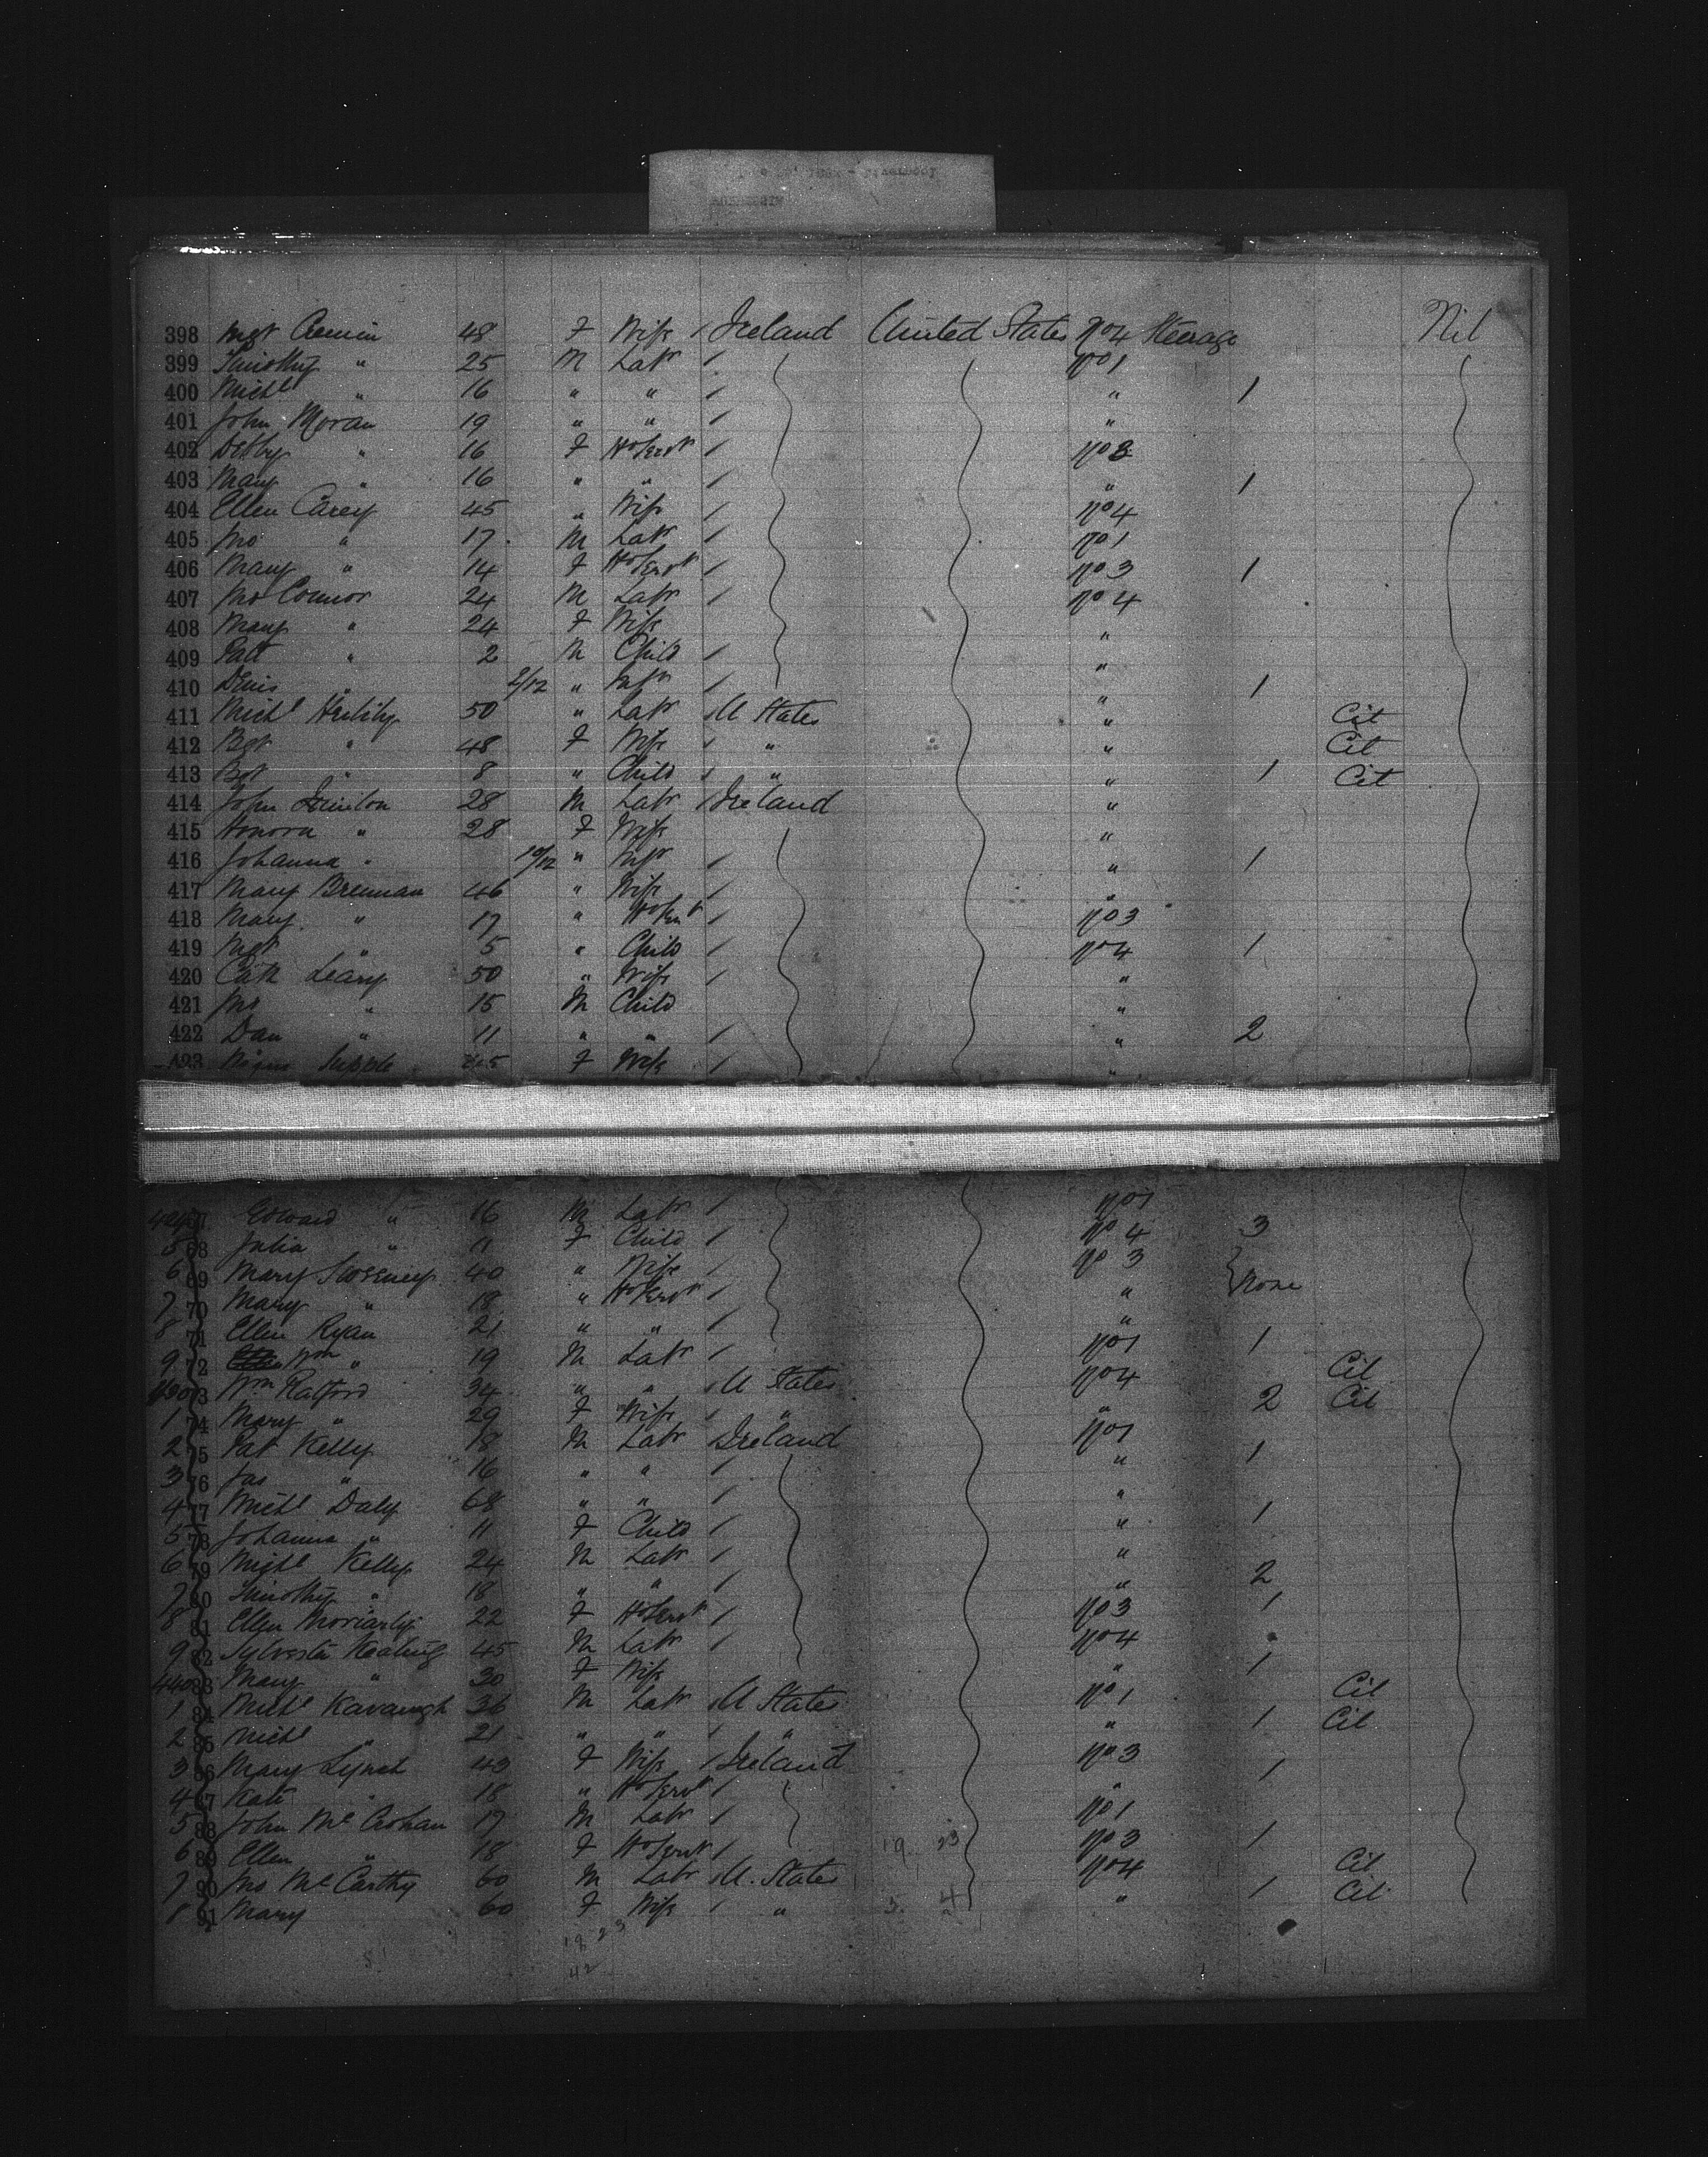 398 Mgt Cremin 48 F Wife / Ireland United States No 4 Steerage Nil
399 Timothy " 25 M Labr / No 1
400 Michl " 16 " " / " 1
401 John Moran 19 " " / "
402 Debby " 16 F Ho Servt / No 3
403 Mary " 16 " " / " 1
404 Ellen Carey 45 " Wife / No 4
405 Jno " 17 M Labr / No 1
406 Mary " 14 F Ho Servt / No 3 1
407 Jno Connor 24 M Labr / No 4
408 Mary " 24 F Wife "
409 Patt " 2 M Child / "
410 Denis " 2/12 " Inft / " 1
411 Michl 50 " Labr / U States " Cit
412 Bgt " 48 F Wife / " " Cit
413 Bgt " 8 " Child / " " 1 Cit
414 John 28 M Labr / Ireland "
415 Honora " 28 F Wife "
416 Johanna " 10/12 " Inft / " 1
417 Mary Brennan 46 " Wife / "
418 Mary " 17 " Ho Servt / No 3
419 Mgt " 5 " Child / No 4 1
420 Cath Leary 50 " Wife / "
421 Jno " 15 M Child "
422 Dan " 11 " " / " 2
423 Supple 45 F Wife / "
424 67 Edward " 16 M Labr / No 1
5 68 Julia " 11 F Child / No 4 3
6 69 Mary Sweeney 40 " Wife / No 3
7 70 Mary " 18 " Ho Servt / " None
8 71 Ellen Ryan 21 " " / "
9 72 Wm " 19 M Labr / No 1 1
430 73 Wm Ratford 34 " " / U States No 4 Cit
1 74 Mary " 29 F Wife / " " 2 Cit
2 75 Pat Kelly 18 M Labr / Ireland No 1
3 76 Jas " 16 " " / " 1
4 77 Michl Daly 68 " " / "
5 78 Johanna " 11 F Child / " 1
6 79 Michl Kelly 24 M Labr / "
7 80 Timothy " 18 " " / " 2
8 81 Ellen Moriarty 22 F Ho Servt / No 3 1
9 82 Sylvester Keating 45 M Labr / No 4
440 83 Mary " 30 F Wife " 1
1 84 Michl Kavanagh 36 M Labr / U States No 1 Cit
2 85 Michl " 21 " " / " " 1 Cit
3 86 Mary Lynch 43 F Wife / Ireland No 3
4 87 Kate " 18 " Ho Servt / " 1
5 88 John McCrohan 17 M Labr / No 1
6 89 Ellen " 18 F Ho Servt / 19 23 No 3 1
7 90 Jno McCarthy 60 M Labr / U. States No 4 Cit
8 91 Mary 60 F Wife / " 3. 4 " 1 Cit
19 23
42